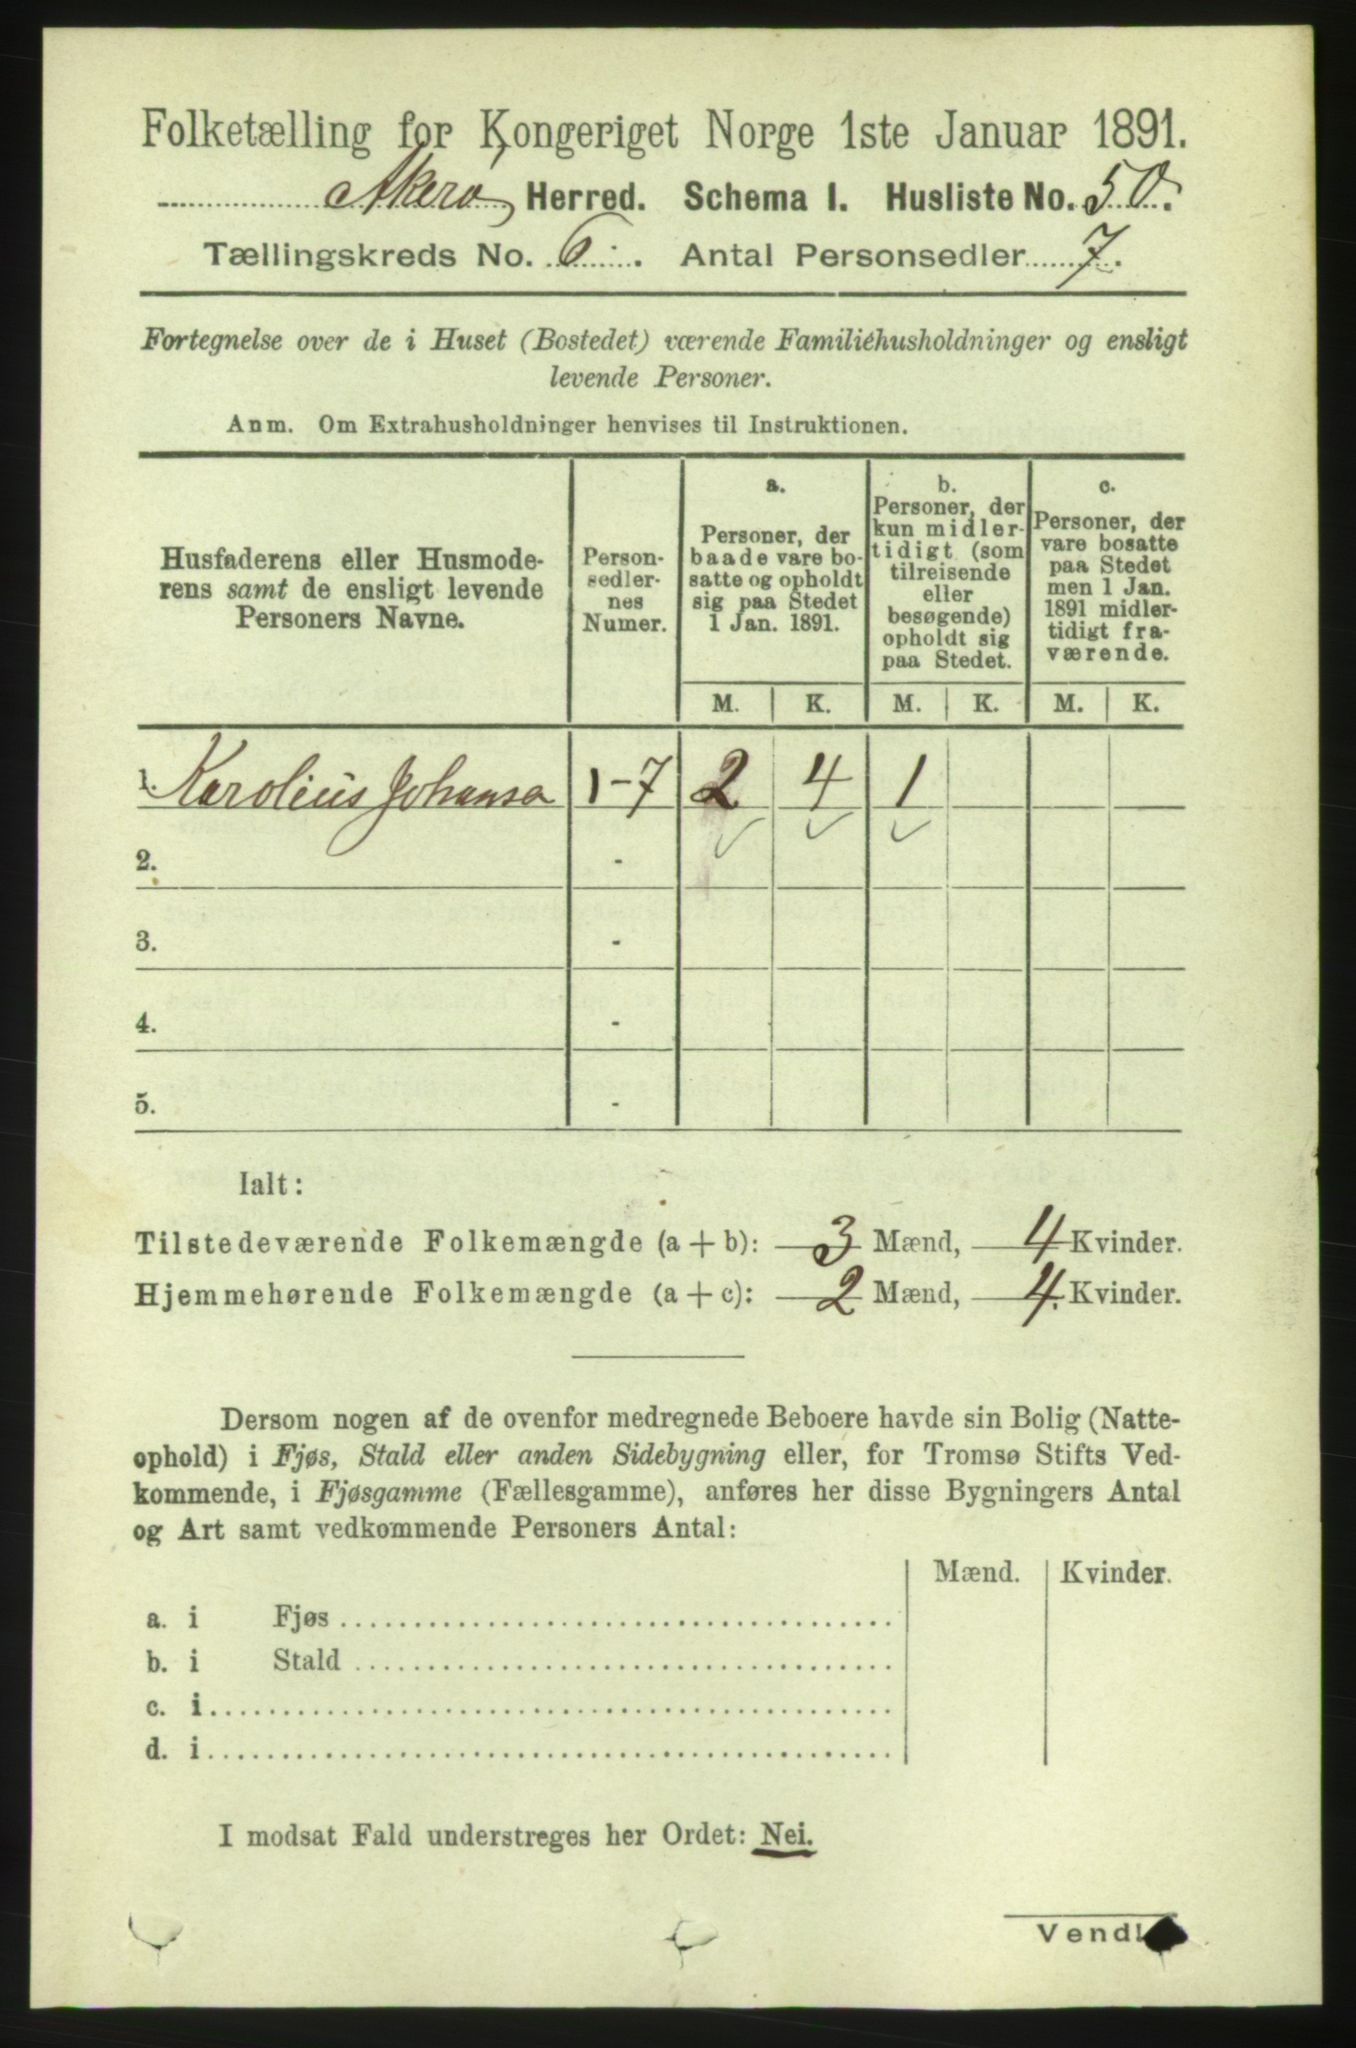 Folketælling for Kongeriget Norge 1ste Januar 1891.
Akerø Herred. Schema I. Husliste No. 50.
Tællingskreds No. 6. Antal Personsedler 7.
Fortegnelse over de i Huset (Bostedet) værende Familiehusholdninger og ensligt
levende Personer.
Anm. Om Extrahusholdninger henvises til Instruktionen.
Husfaderens eller Husmode-
rens samt de ensligt levende
Personers Navne.
Person-
sedler-
nes
Numer.
a.
Personer, der
baade vare bo-
satte og opholdt
sig paa Stedet
1 Jan. 1891.
b.
Personer, der
kun midler-
tidigt (som
tilreisende
eller
besøgende)
opholdt sig
paa Stedet.
c.
Personer, der
vare bosatte
paa Stedet
men 1 Jan.
1891 midler-
tidigt fra-
værende.
M. K. M. K. M. K.
1. Karolius Johansen 1-7 2 4 1
2. -
3. -
4. -
5. -
Ialt:
Tilstedeværende Folkemængde (a+b): 3 Mænd, 4 Kvinder.
Hjemmehørende Folkemængde (a+c): 2 Mænd, 4. Kvinder.
Dersom nogen af de ovenfor medregnede Beboere havde sin Bolig (Natte-
ophold) i Fjøs, Stald eller anden Sidebygning eller, for Tromsø Stifts Ved-
kommende, i Fjøsgamme (Fællesgamme), anføres her disse Bygningers Antal
og Art samt vedkommende Personers Antal:
Mænd. Kvinder.
a. i Fjøs
b. i Stald
c. i
d. i
I modsat Fald understreges her Ordet: Nei.
Vend!